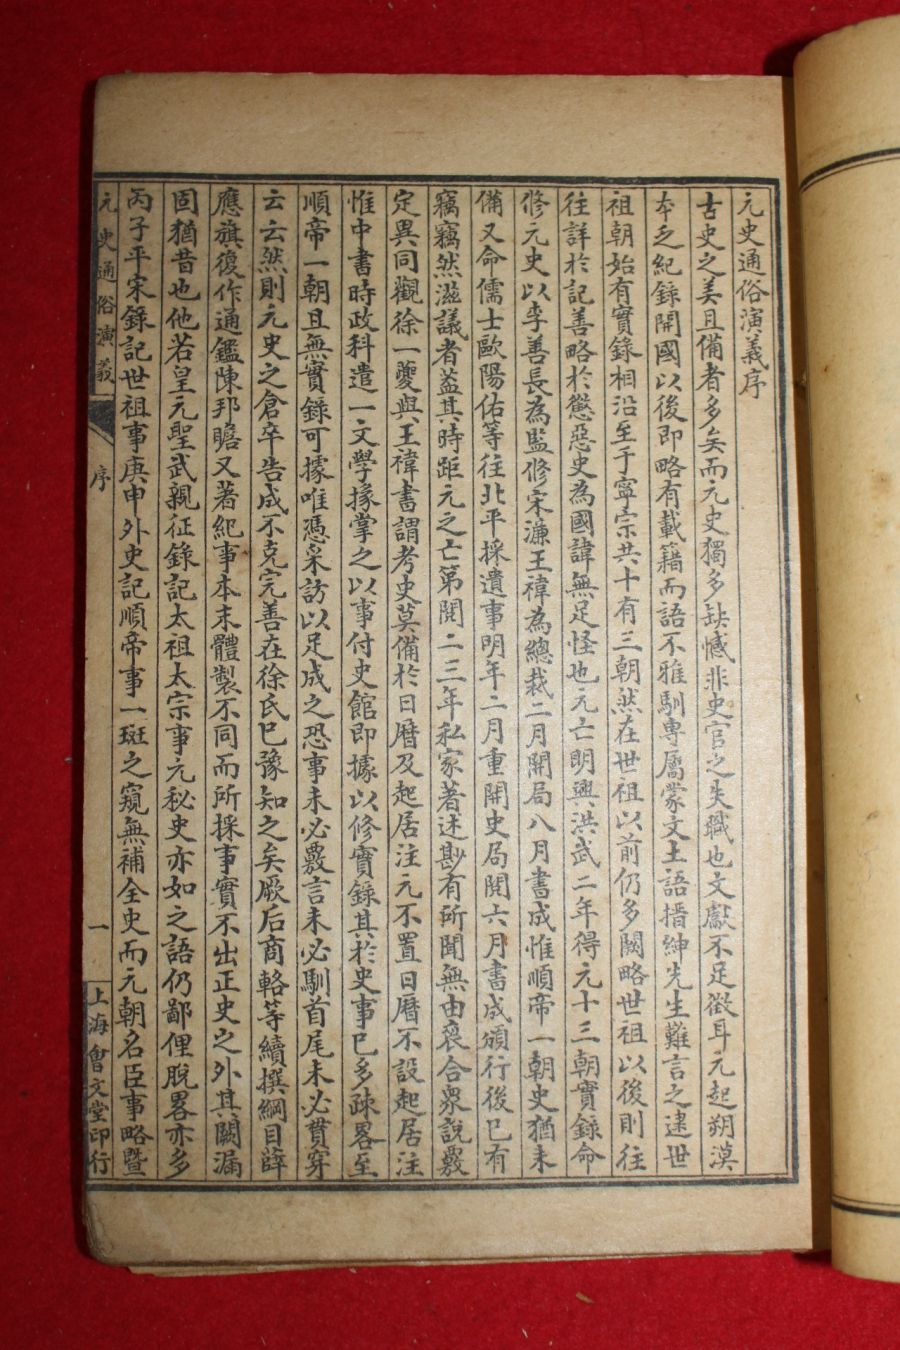 元史通俗演義序
古史之美且備者多矣而元史獨多缺憾非史官之失職也文獻不足徵耳元起朔漠
本乏紀錄開國以後即略有載籍而語不雅馴專屬蒙文土語搢紳先生難言之逮世
祖朝始有實錄相沿至于寧宗共十有三朝然在世祖以前仍多闕略世祖以後則往
往詳於記善略於懲惡史為國諱無足怪也元亡明興洪武二年得元十三朝實錄命
修元史以李善長為監修宋濂王禕為總裁二月開局八月書成惟順帝一朝史猶未
備又命儒士歐陽佑等往北平採遺事明年二月重開史局閱六月書成頒行後已有
竊竊然滋議者蓋其時距元之亡第閱二三年私家著述尟有所聞無由裒合衆說覈
定異同觀徐一夔與王禕書謂考史莫備於日曆及起居注元不置日曆不設起居注
惟中書時政科遣一文學掾掌之以事付史館即據以修實錄其於史事已多疎畧至
順帝一朝且無實錄可據唯憑采訪以足成之恐事未必覈言未必馴首尾未必貫穿
云云然則元史之倉卒告成不克完善在徐氏已豫知之矣厥后商輅等續撰綱目薛
應旗復作通鑑陳邦瞻又著紀事本末體製不同而所採事實不出正史之外其闕漏
固猶昔也他若皇元聖武親征錄記太祖太宗事元秘史亦如之語仍鄙俚脫畧亦多
丙子平宋錄記世祖事庚申外史記順帝事一斑之窺無補全史而元朝名臣事略暨
元史通俗演義
序
一
上海會文堂印行